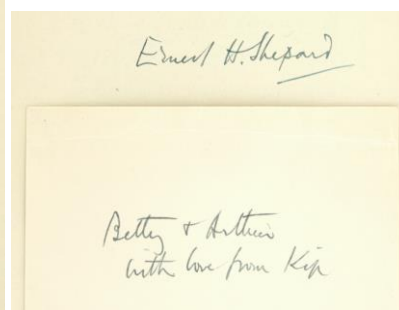 Ernest H. Shepard
Betty & Arthur
with love from Kip